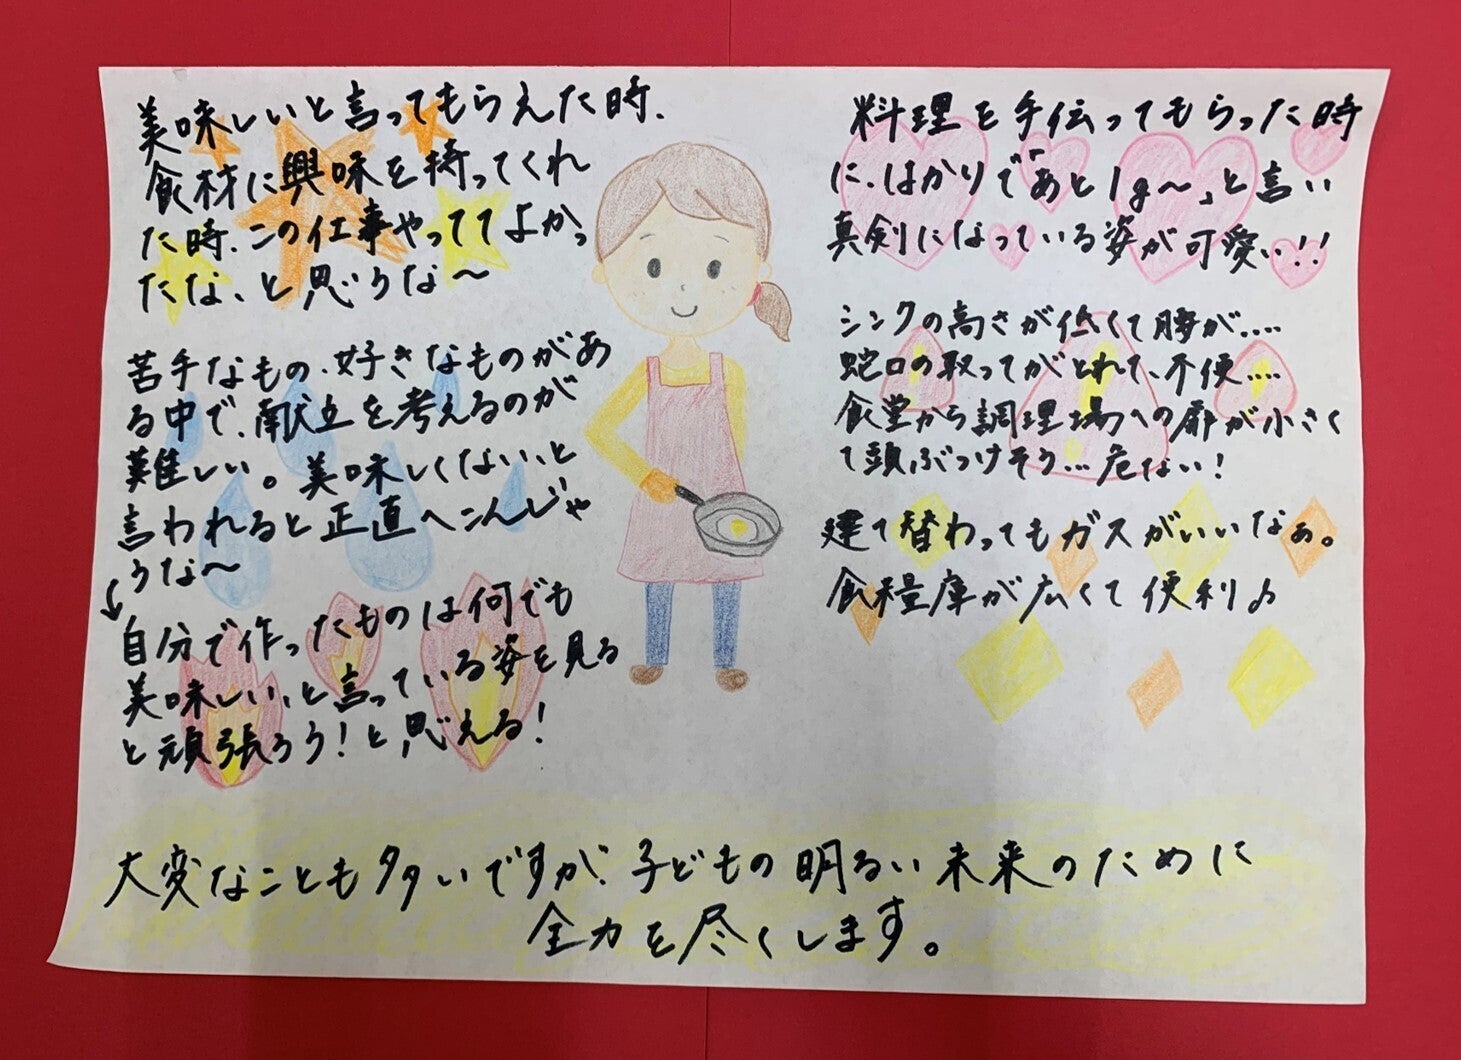 美味しいと言ってもらえた時、
食材に興味を持ってくれ
た時、この仕事やっててよかっ
たな、と思うな〜
苦手なもの、好きなものがあ
る中で、献立を考えるのが
難しい。美味しくない、と
言われると正直へこんじゃ
うな〜
自分で作ったものは何でも
美味しい、と言っている姿を見る
と頑張ろう!と思える!
料理を手伝ってもらった時
に、はかりで「あと1g〜」と言い
真剣になっている姿が可愛い!!
シンクの高さが低くて腰が....
蛇口の取ってがとれて、不便....
食堂から調理場への扉が小さく
て頭ぶつけそう...危ない!
建て替わってもガスがいいなぁ。
食糧庫が広くて便利♪
大変なことも多いですが、子どもの明るい未来のために
全力を尽くします。